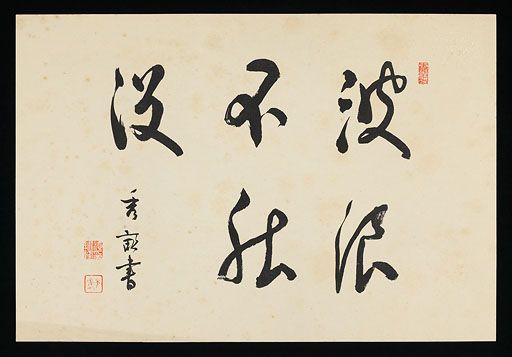 波浪
不能
没
秀畝書